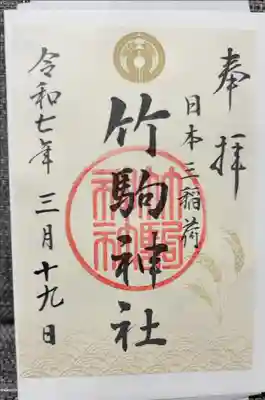 奉拝
日本三稲荷
竹駒神社
令和七年三月十九日
竹駒神社